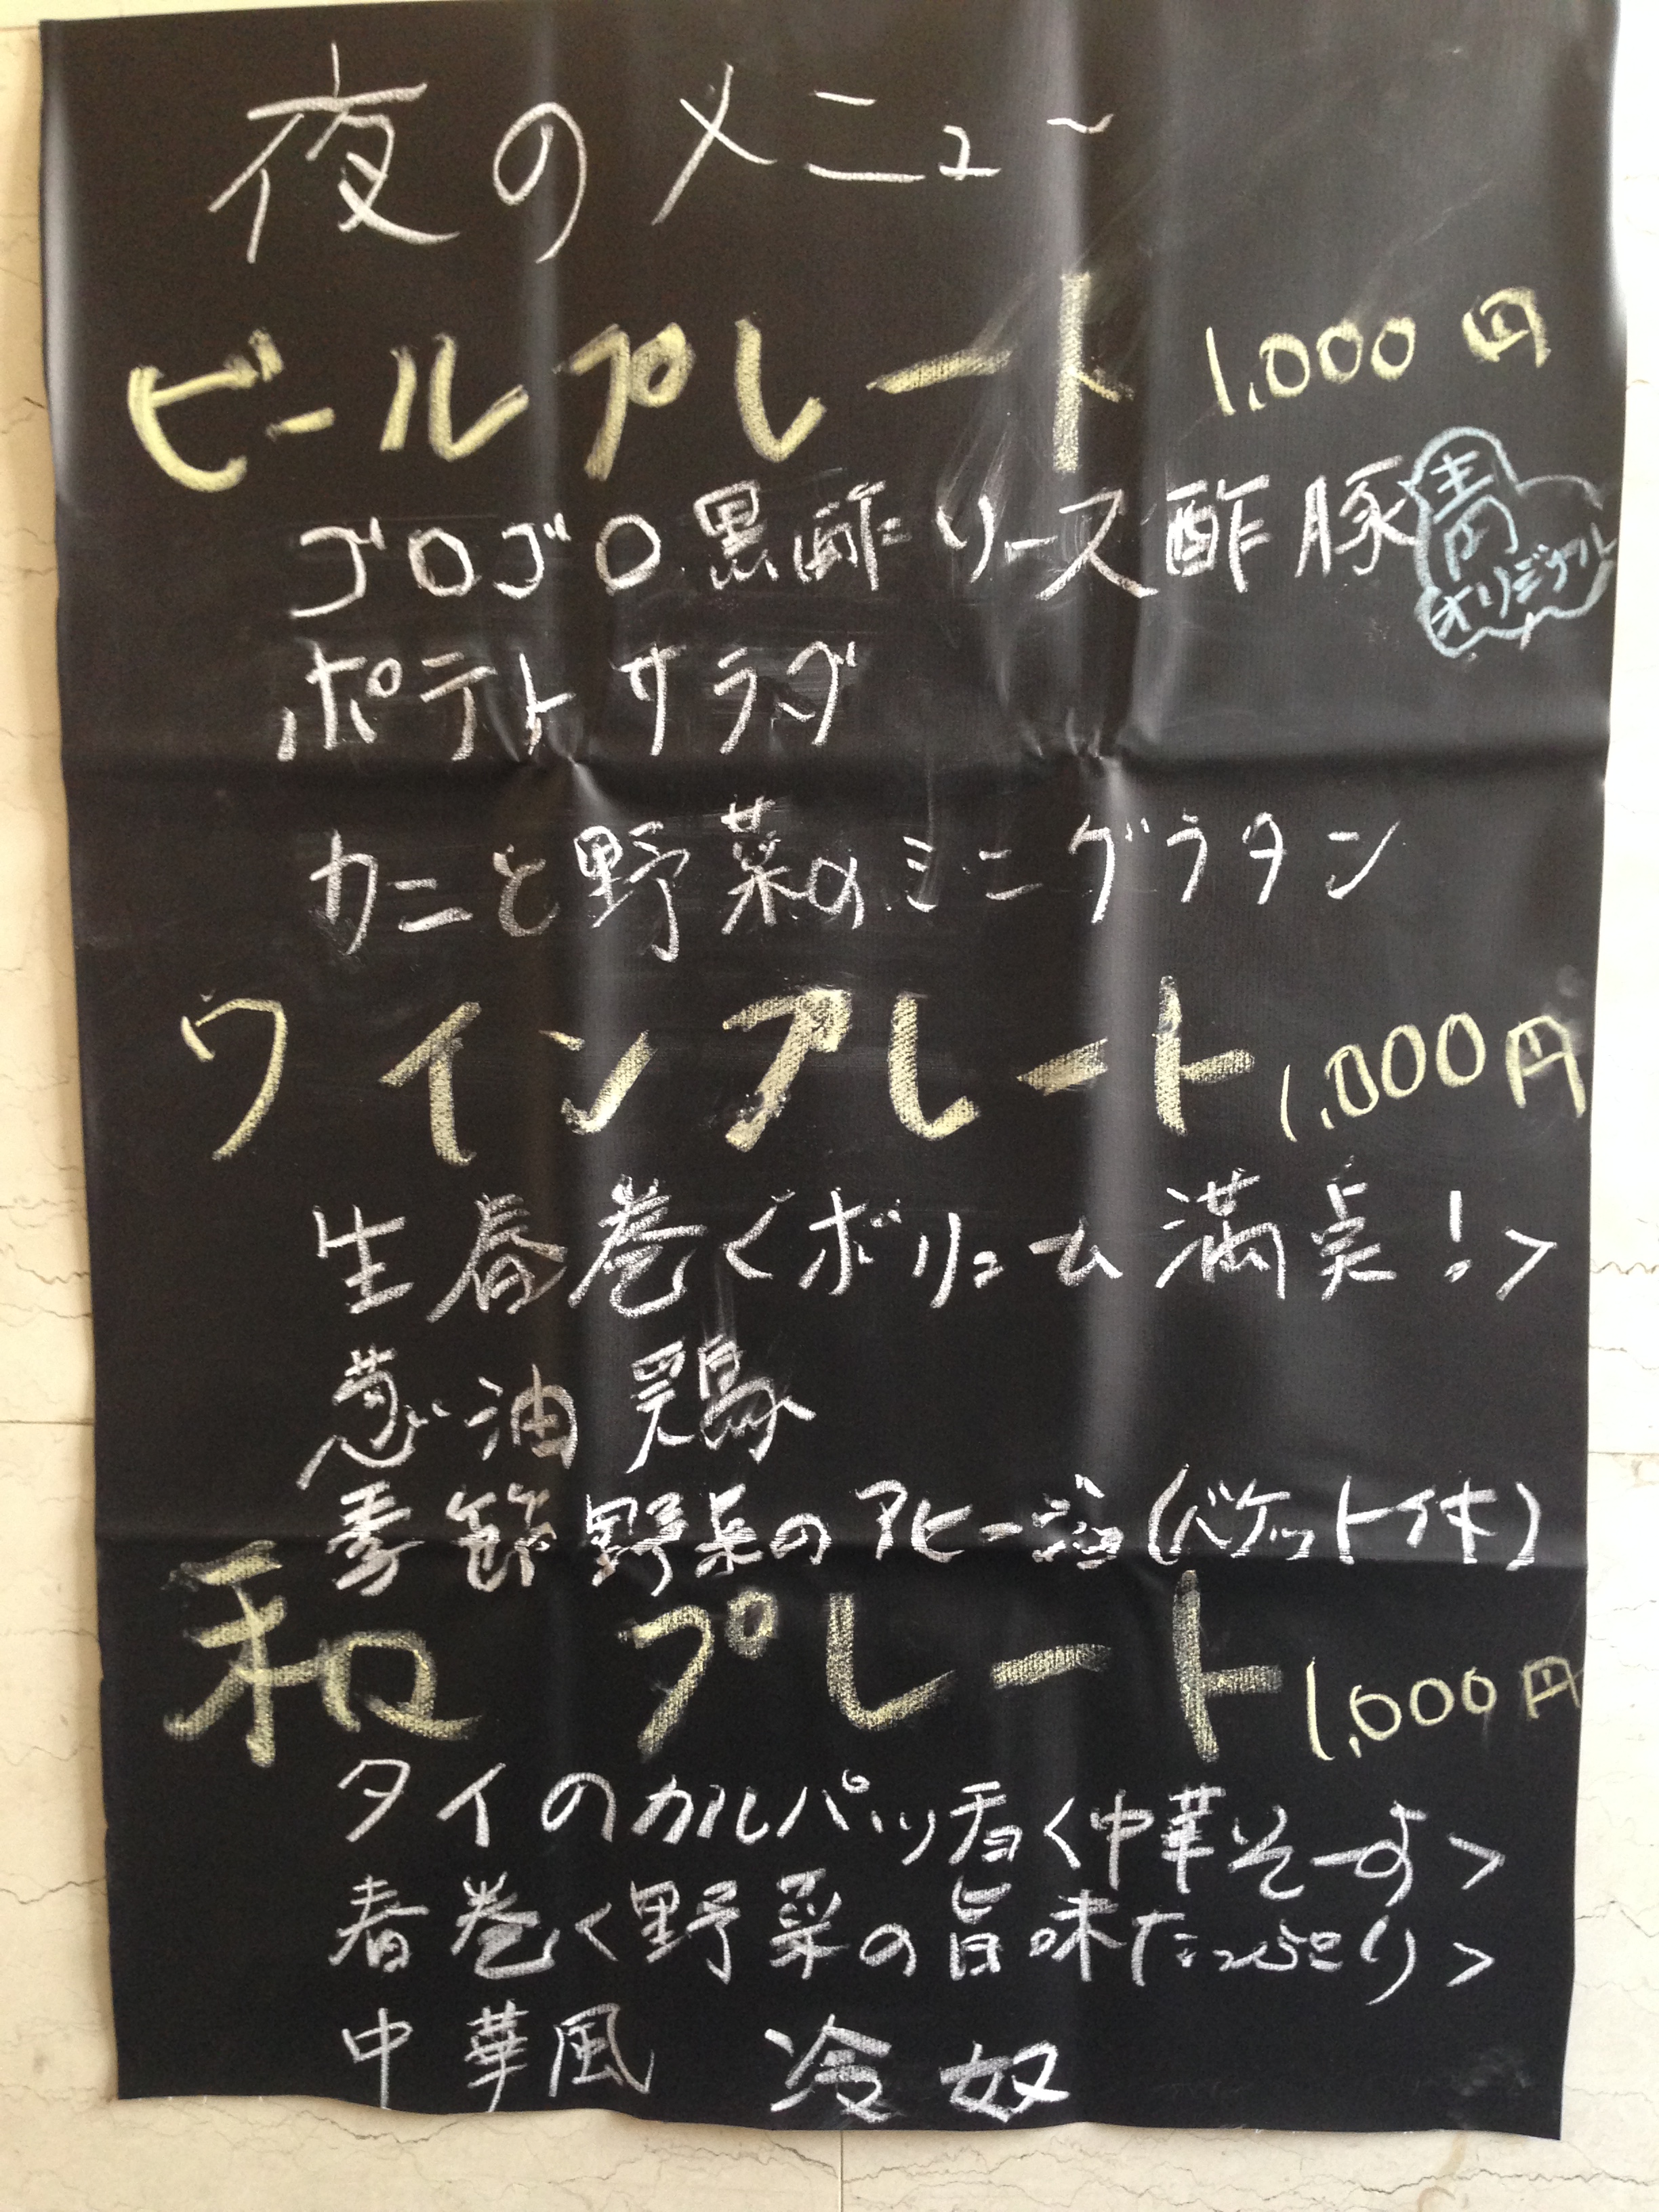 夜のメニュー
ビールプレート 1,000円
ゴロゴロ黒酢ソース酢豚
青
オリジナル
ポテトサラダ
カニと野菜のミニグラタン
ワインプレート 1,000円
生春巻<ボリューム満点！>
葱油鶏
季節野菜のアヒージョ(バケット付)
和プレート 1,000円
タイのカルパッチョ<中華そーす>
春巻<野菜の旨味たっぷり>
中華風 冷奴